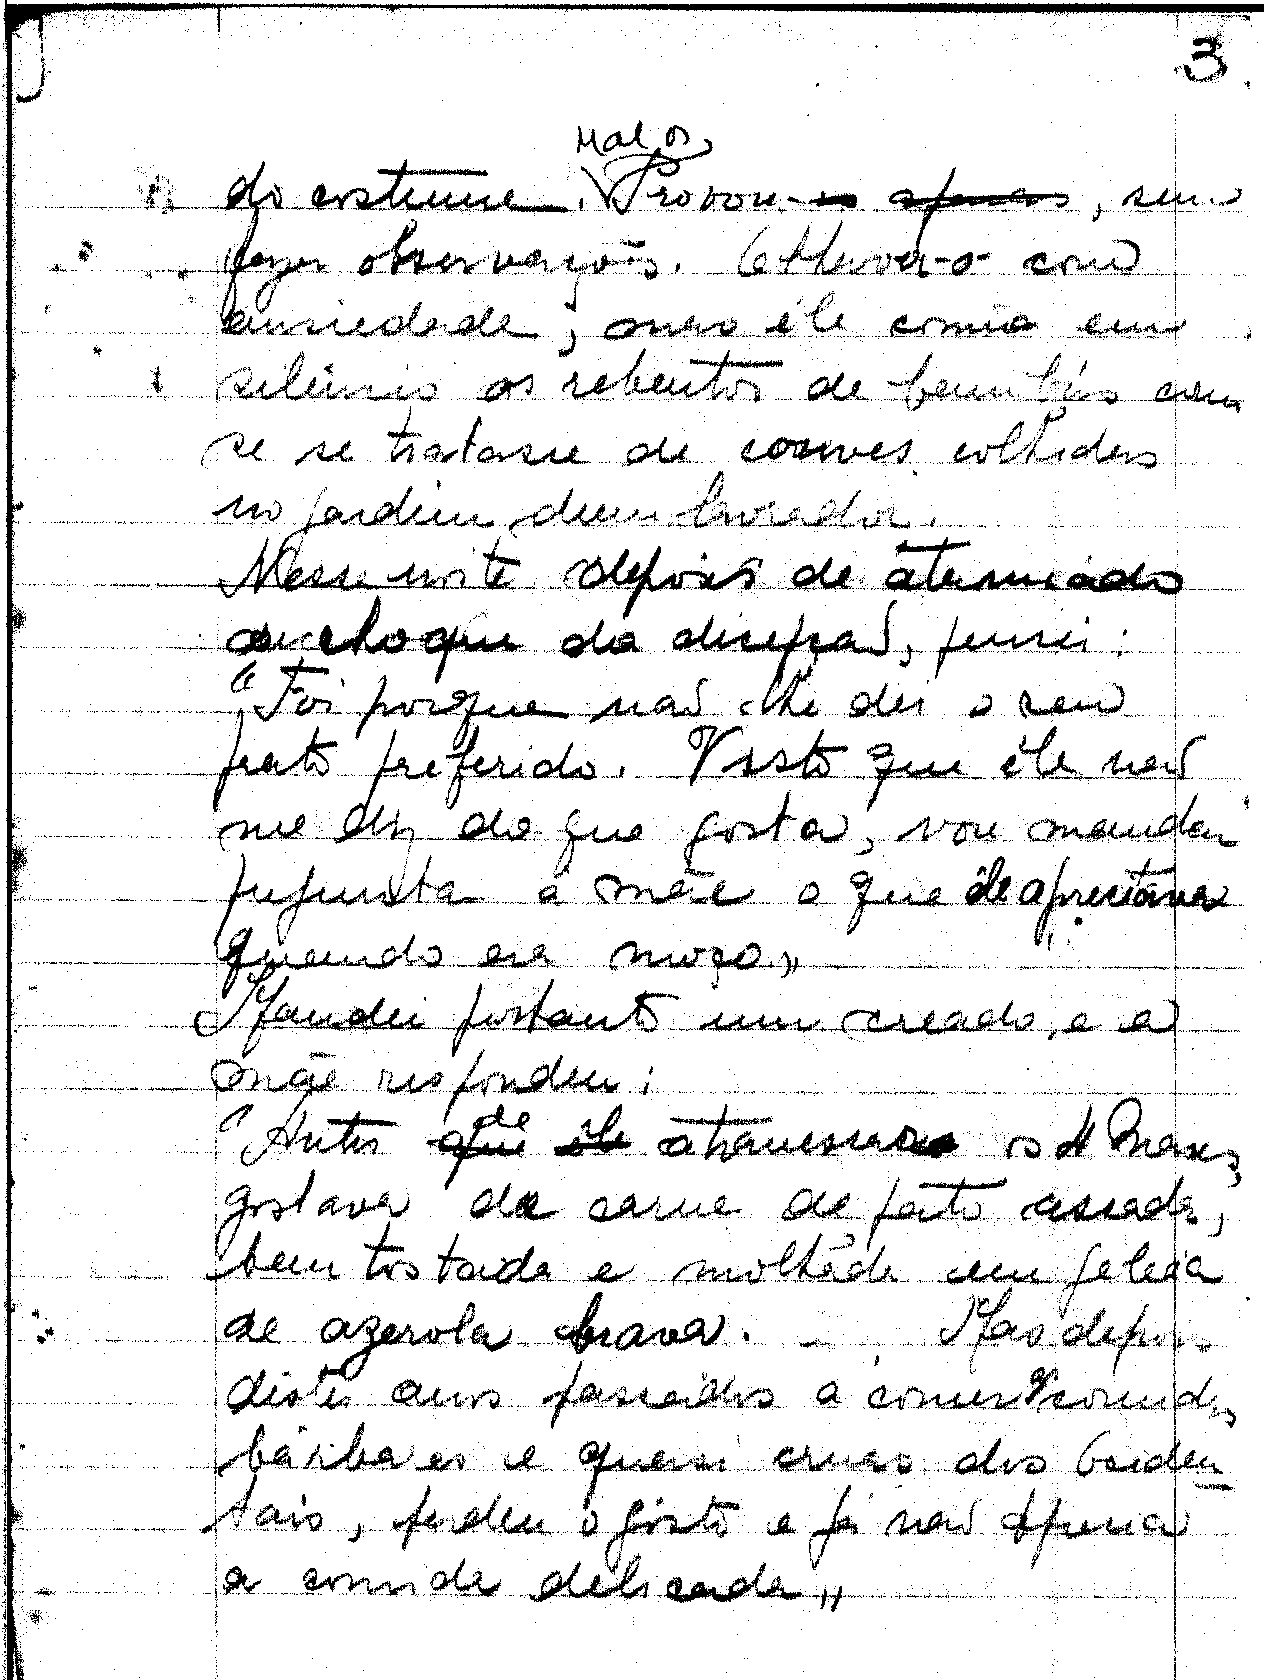 3
Mal os
do costume. Provou-os apenas, sem
fazer observações. Observei-o com
ansiedade; mas êle comia em
silêncio os rebentos de bambús como
se se tratasse de couves colhidas
no jardim dum lavrador.
Nessa noite depois de atenuado
o choque da decepção, pensei:
"Foi porque não lhe dei o seu
prato preferido. Visto que êle não
me diz do que gosta, vou mandar
perguntar à mãe o que êle apreciava
quando era moço„
Mandei portanto um creado, e a
mãe respondeu:
de
"Antes que êle atravessar os 4 Mares,
gostava de carne de pato assada,
bem tostada e molhada em geleia
de azerola brava. Mas depois
dêstes anos passados a comer comidas
bárbaras e quasi cruas dos Ociden
tais, perdeu o gôsto e já não aprecia
a comida delicada„